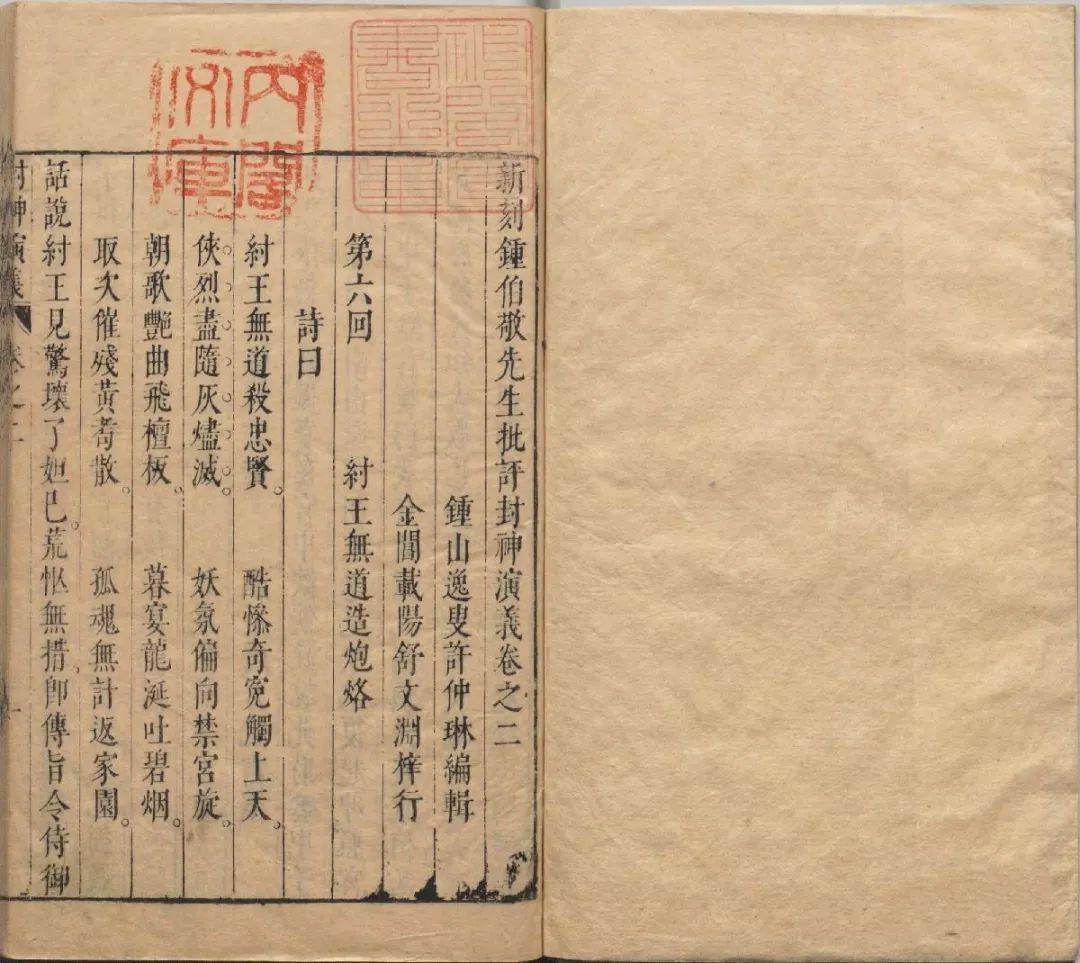 新刻鍾伯敬先生批評封神演義卷之二
鍾山逸叟許仲琳編輯
金閶載陽舒文淵梓行
第六回 紂王無道造炮烙
詩曰
紂王無道殺忠賢。 酷慘奇寃觸上天。
俠烈盡隨灰燼滅。 妖氛偏向禁宮旋。
朝歌艷曲飛檀板。 暮宴龍涎吐碧烟。
取次催殘黃耉散。 孤魂無計返家園。
話說紂王見驚壞了妲己。荒怄無措即傳旨令侍御
封神演義 卷之二 一
內閣
文庫